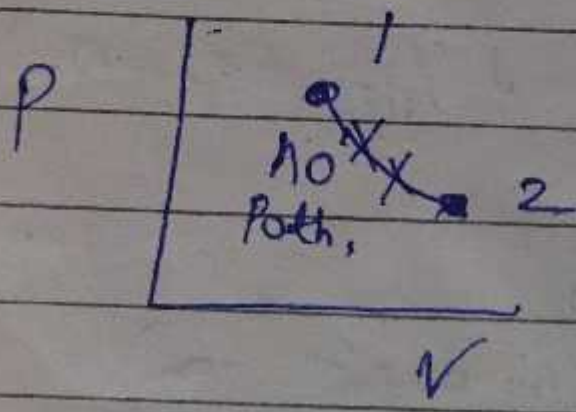 1
P
no
Path,
2
V